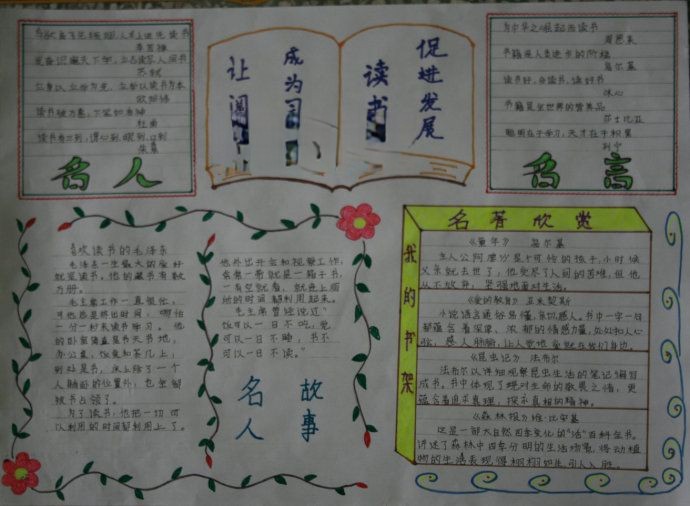 发奋识遍天下字,立志读尽人间书
苏轼
立身以立学为先,立学以读书为本
欧阳修
读书破万卷,下笔如有神
杜甫
读书有三到,谓心到,眼到,口到
朱熹
名人
让阅
成为习
读书
促进发展
为中华之崛起而读书
周恩来
书籍是人类进步的阶梯
高尔基
读书好,多读书,读好书
冰心
书籍是全世界的营养品
莎士比亚
聪明在于学习,天才在于积累
列宁
名言
喜欢读书的毛泽东
毛泽东一生最大的爱好
就是读书。他的藏书有数
万册。
毛主席工作一直很忙,
可他总是挤出时间,哪怕
一分一秒来读书学习。他
的卧室简直是书天书地,
办公桌,饭桌和茶几上,
到处是书,床上除了一个
人躺卧的位置外,也全部
被书占领了。
为了读书,他把一切可
以利用的时间都利用上了。
他外出开会和视察工作,
常常一带就是一箱子书,
一有空就看,就连上厕
所的时间都利用起来。
毛主席曾经说过
饭可以一日不吃,觉
可以一日不睡,书不
可以一日不读。”
名人
故事
我的书架
名著欣赏
《童年》 高尔基
主人公阿廖沙是个可怜的孩子,小时候
父亲就去世了,他受尽了人间的苦难,但他
从不放弃,坚强地面对生活。
《爱的教育》亚米契斯
小说语言通俗易懂,亲切感人。书中一字一句
都蕴含着深厚、浓郁的情感力量,处处扣人心
弦,感人肺腑,让人觉地爱就在我们身边。
《昆虫记》法布尔
法布尔以详细观察昆虫生活的笔记编写
成书。书中体现了他对生命的敬畏之情,更
蕴含着追求真理,探求真相的精神。
《森林报》维·比安基
这是一部大自然四季变化的“活”百科全书。
讲述了森林中四季分明的生活场景,将动植
物的生活表现得栩栩如生,引人入胜。